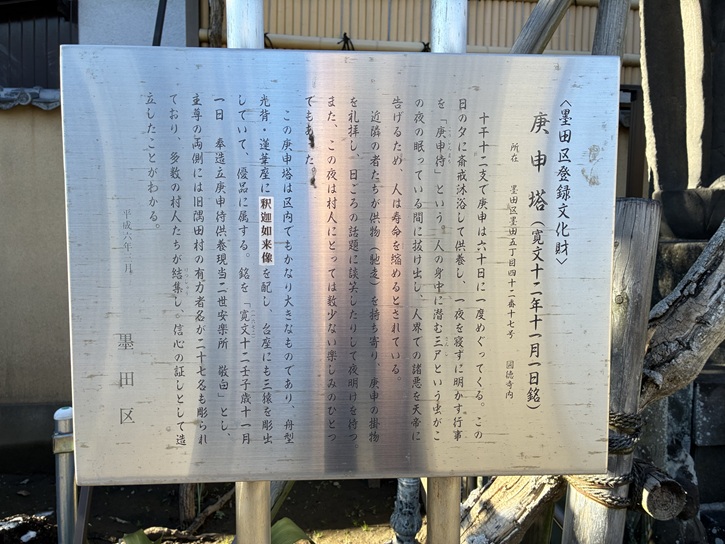 〈墨田区登録文化財〉
庚申塔(寛文十二年十一月一日銘)
所在 墨田区墨田五丁目四十二番十七号 円徳寺内
十干十二支で庚申は六十日に一度めぐってくる。この
日の夕に斎戒沐浴して供養し、一夜を寝ずに明かす行事
を「庚申待」という。人の身中に潜む三尸という虫がこ
の夜の眠っている間に抜け出し、人界での諸悪を天帝に
告げるため、人は寿命を縮めるとされている。
近隣の者たちが供物(馳走)を持ち寄り、庚申の掛物
を礼拝し、日ごろの話題に談笑したりして夜明けを待つ
また、この夜は村人にとっては数少ない楽しみのひとつ
でもあった
この庚申塔は区内でもかなり大きなものであり、舟型
光背・蓮華座に釈迦如来像を配し、台座にも三猿を彫出
していて、優品に属する。銘を「寛文十二壬子歳十一月
一日 奉造立庚申待供養現当二世安楽所 敬白」とし、
主尊の両側には旧隅田村の有力者名が二十七名も彫られ
ており、多数の村人たちが結集し。信心の証しとして造
立したことがわかる。
平成六年三月
墨田区